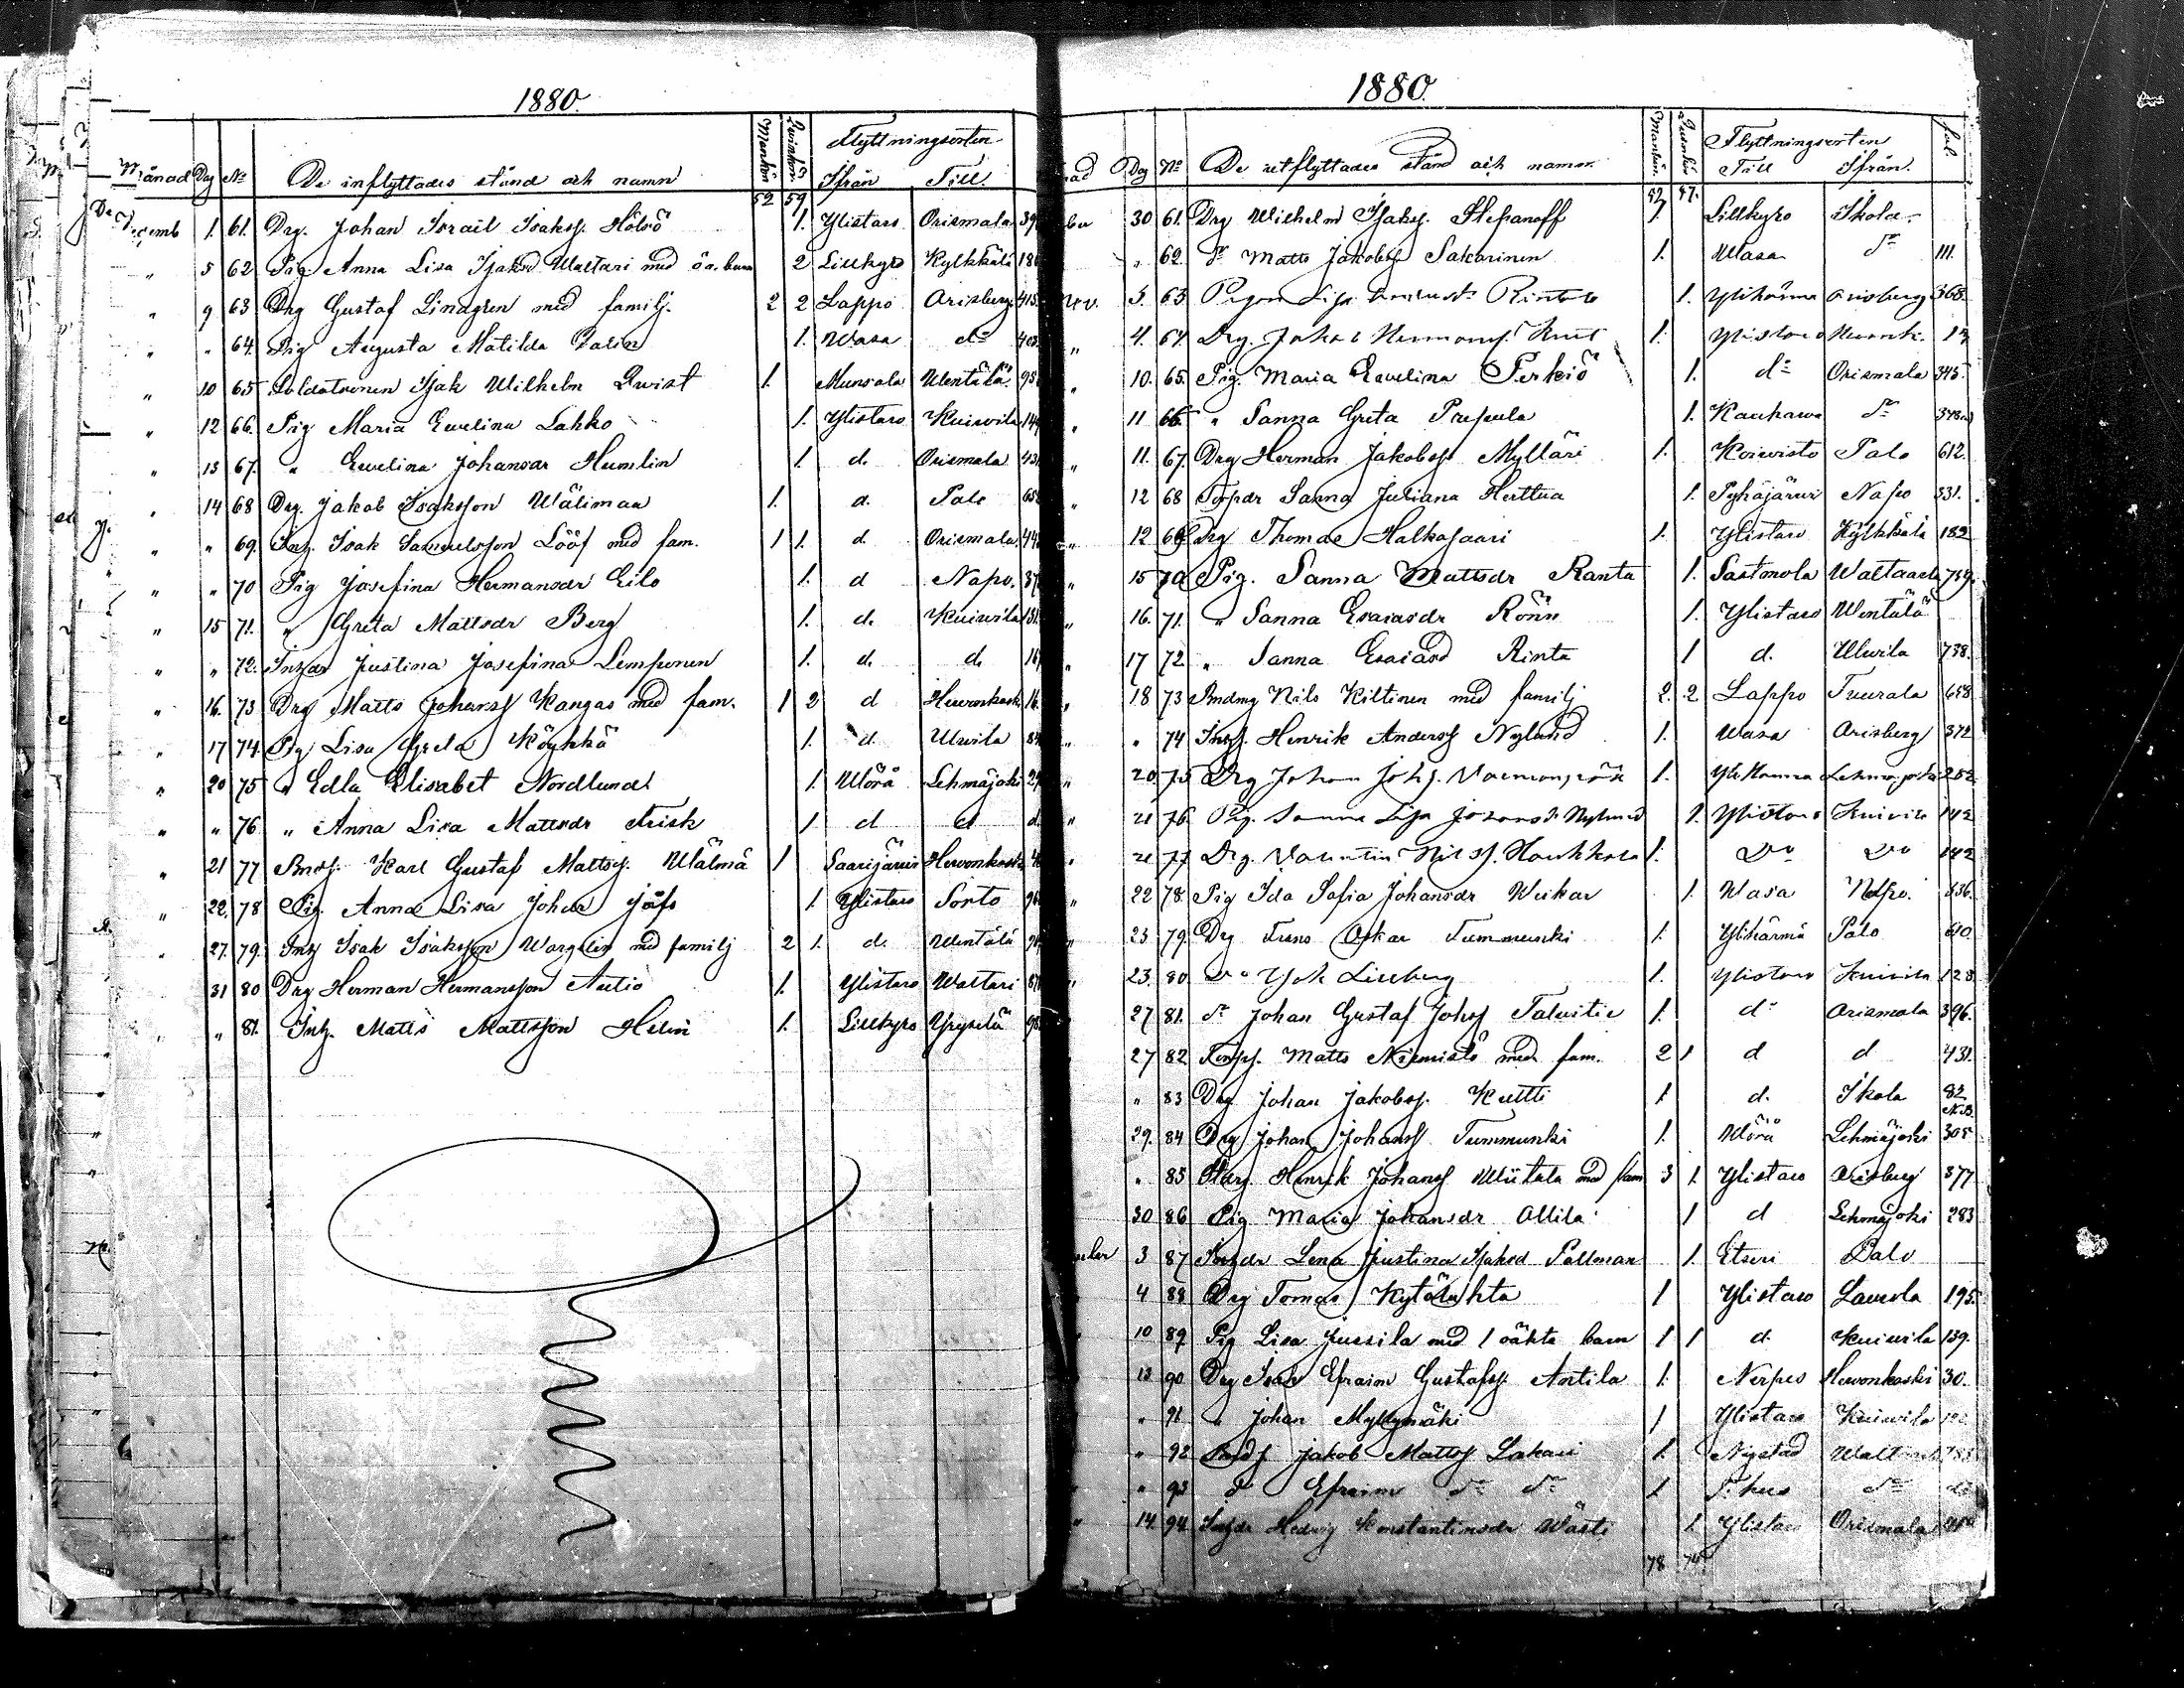 1880.
Månad Dag No De inflyttades stånd och namn Mankön Qvinkön Flyttningsorten
Ifrån Till.
52 59
Decemb 1. 61. Drg. Johan Israil Isaksf. Hölsö 1. Ylistaro Orismala 39
" 5 62 Pig. Anna Lisa Isaksd Waltari med barn 2 Lillkyro Kylkkälä 18
" 9 63 Drg Gustaf Lindgren med familj. 2 2 Lappo Orisberg 415
" " 64. Pig Augusta Matilda 1. Wasa do 403
" 10 65 Soldatsonen Isak Wilhelm Qwist 1. Munsala Wentälä 95
" 12 66. Pig Maria Ewelina Lahko 1. Ylistaro Kuiwila 144
" 13 67. " Ewelina Johansdr Humlin 1. d. Orismala 43
" 14 68 Drg. Jakob Isaksson Wäliman 1. d. Palo 65
" " 69. Inh. Isak Samuelsson Lööf med fam. 1 1. d Orismala 44
" " 70 Pig Josefina Hermansdr Eilo 1. d Napo. 37
" 15 71. " Greta Mattsdr Berg 1. d. Kuiwila 131
" " 72. Inhdr Justina Josefina Lemponen 1. d. d. 16
" 16. 73 Drg Matts Johansf Kangas med fam. 1 2 d Hewonkoski 16
" 17 74. Pig Lisa Greta Köykkä 1. d. Ulwila 84
" 20 75 " Edla Elisabet Nordlund 1. Wörå Lehmäjoki 29
" " 76 " Anna Lisa Mattsdr Frisk 1 d d d.
" 21 77 Bndf. Karl Gustaf Mattsf. Wälmä 1 Saarijärvi Hewonkoski
" 22. 78 Pig. Anna Lisa Johdr Jåfs 1. Ylistaro Sorto
" 27. 79. Inh Isak Isaksson Wargelin med familj 2 1. d. Wentälä
31 80 Drg Herman Hermansson Autio 1. Ylistaro Waltari 87
" 81. Inh. Matts Mattsson Helin 1. Lillkyro Yryselä 98
1880.
Dag No De utflyttades stånd och namn Mankön Qvinkön Flyttningsorten fol
Till Ifrån.
52 47.
30 61. Drg Wilhelm Isaksf. Stefanoff 1 Lillkyro Ikola
" 62. do Matts Jakobsf Sakarinen 1. Wasa do 111.
Nov. 3. 63. Pigan Lisa Rintala 1. Ylihärmä Orisberg 368
" 4. 64. Drg. Jakob Hermansf. Knut 1. Ylistaro Hewonk. 13
" 10. 65. Pig. Maria Ewelina Perkiö 1. do Orismala 345
" 11 66. " Sanna Greta Pusula 1. Kauhawa do 378
" 11. 67. Drg Herman Jakobsf Mylläri 1. Koiwisto Palo 612.
" 12 68 Torpdr Sanna Juliana Herttua 1. Pyhäjärwi Napo 331.
" 12 69 Drg Thomas Halkosaari 1. Ylistaro Kylkkälä 182
" 15 70 Pig. Sanna Mattsdr Ranta 1. Sastmola Waltaala 739.
" 16. 71. " Sanna Esaiasdr Rönn 1. Ylistaro Wentälä
" 17 72 " Sanna Esaiasd Rinta 1 d. Ulwila 738.
" 18 73 Bndmg Nils Kiltinen med familj 2. 2 Lappo Tuurala 658
" " 74 Inhf. Henrik Andersf Nylund 1. Wasa Orisberg 372
" 20. 75 Drg Johan Johf. 1. Ylihärmä Lehmäjoki 252
" 21 76. Pig. Sanna Lisa Johansdr Nylund 1. Ylistaro Kuiwila 142
" 21 77 Drg. Valentin Nilsf. Haukkala 1. Do Do 142
" 22 78. Pig Ida Sofia Johansdr Weikar 1. Wasa Napo. 336.
" 23 79. Drg Frans Oskar Tummunki 1. Ylihärmä Palo 610
" 23. 80 Do Isak Liedberg 1. Ylistaro Kuiwila 123
27 81. do Johan Gustaf Johsf Taluitie 1. do Orismala 396.
27 82 Torpf. Matts Niemistö med fam. 2 1 d d 431.
" 83 Drg Johan Jakobsf. Kultti 1 d. Ikola 82 N.B.
29. 84 Drg Johan Johansf Tummunki 1. Wörå Lehmäjoki 305
" 85 Henrik Johansf Wiitala med fam 3 1. Ylistaro Orisberg 377
30 86 Pig Maria Johansdr Ollila 1 d Lehmäjoki 283
3 87 Inhdr Lena Justina Isaksd Pollman 1. Etseri Palo
4 88 Drg Tomas Kytöluhta 1 Ylistaro Laurola 195.
10 89. Pig Lisa Jussila med 1 oäkta barn 1 1 d. Kuiwila 139.
13 90 Drg Isak Efraim Gustafsf. Antila 1. Nerpes Hewonkoski 30.
" 91 " Johan Myllymäki 1 Ylistaro Kuiwila
" 92 Bndf Jakob Mattsf Lakari 1. Nystad
" 93 d Efraim do do 1 do
" 14 94 Inhdr Hedvig Konstantinsdr Wästi 1. Ylistaro Orismala
78 74